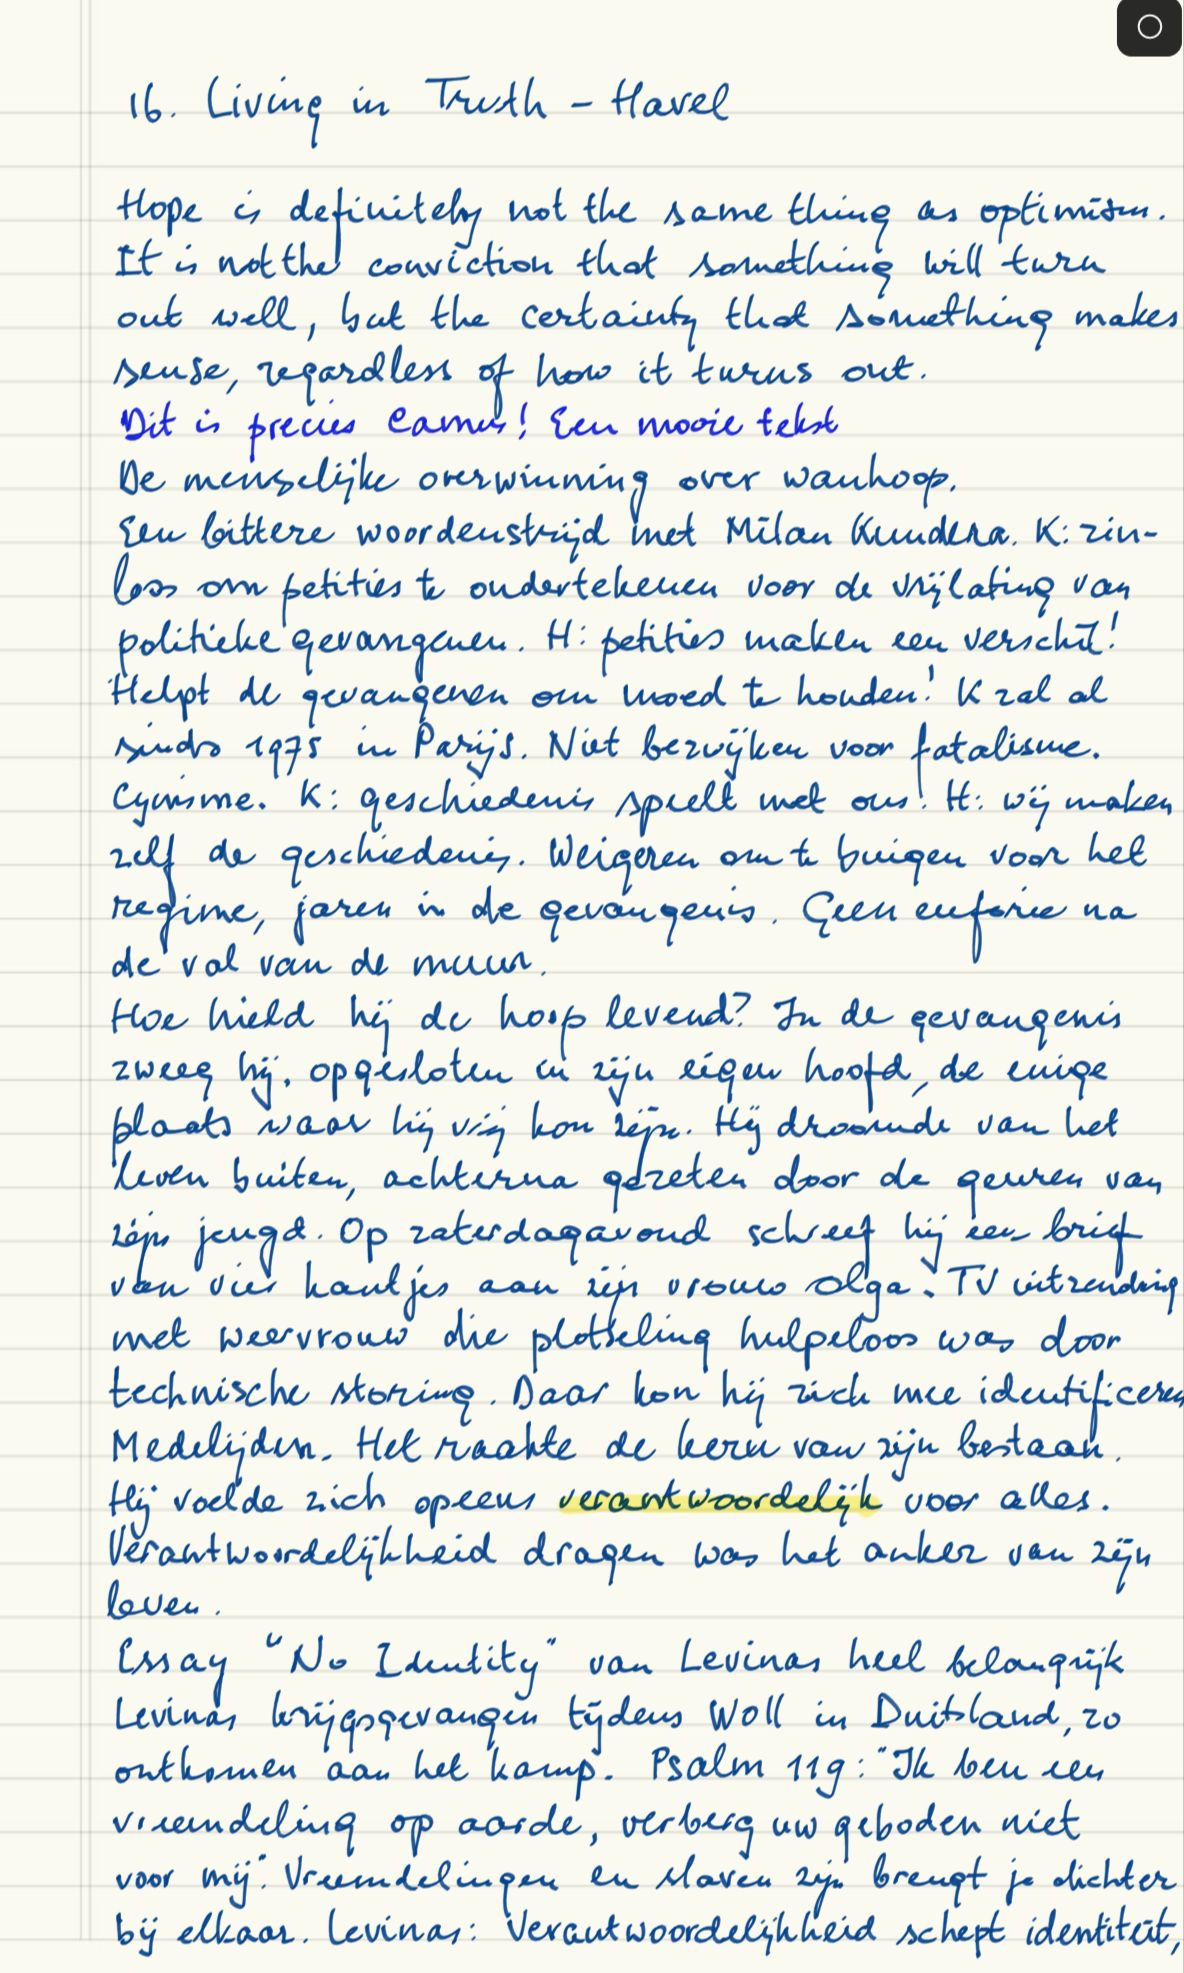 16. Living in Truth - Havel
Hope is definitely not the same thing as optimism.
It is not the conviction that something will turn
out well, but the certainty that something makes
sense, regardless of how it turns out.
Dit is precies Camus! Een mooie tekst
De menselijke overwinning over wanhoop.
Een bittere woordenstrijd met Milan Kundera. K: zin-
loos om petities te ondertekenen voor de vrijlating van
politieke gevangenen. H: petities maken een verschil!
Helpt de gevangenen om moed te houden! K zal al
sinds 1975 in Parijs. Niet bezwijken voor fatalisme.
Cynisme. K: geschiedenis speelt met ons! H: wij maken
zelf de geschiedenis. Weigeren om te buigen voor het
regime, jaren in de gevangenis. Geen euforie na
de val van de muur.
Hoe hield hij de hoop levend? In de gevangenis
zweeg hij, opgesloten in zijn eigen hoofd, de enige
plaats waar hij vrij kon zijn. Hij droomde van het
leven buiten, achterna gezeten door de geuren van
zijn jeugd. Op zaterdagavond schreef hij een brief
van vier kantjes aan zijn vrouw Olga. TV uitzending
met weervrouw die plotseling hulpeloos was door
technische storing. Daar kon hij zich mee identificeren
Medelijden. Het raakte de kern van zijn bestaan.
Hij voelde zich opeens verantwoordelijk voor alles.
Verantwoordelijkheid dragen was het anker van zijn
leven.
Essay "No Identity" van Levinas heel belangrijk
Levinas krijgsgevangen tijdens WOII in Duitsland, zo
ontkomen aan het kamp. Psalm 119: "Ik ben een
vreemdeling op aarde, verberg uw geboden niet
voor mij". Vreemdelingen en slaven zijn brengt je dichter
bij elkaar. Levinas: Verantwoordelijkheid schept identiteit,